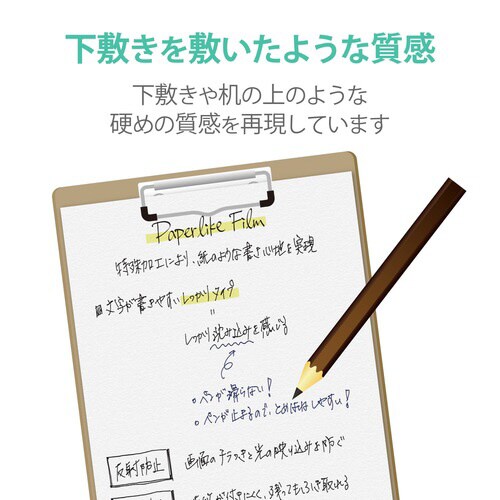 下敷きを敷いたような質感
下敷きや机の上のような
硬めの質感を再現しています
Paperlike Film
特殊加工により、紙のような書き心地を実現
文字が書きやすいしっかりタイプ
=
しっかり沈み込みを感じる
○ペンが滑らない!
○ペンが止まるので、とめはねはらいしやすい!
反射防止 画面のチラつきと光の映り込みを防ぐ
が付きにくく、残ってもふき取れる